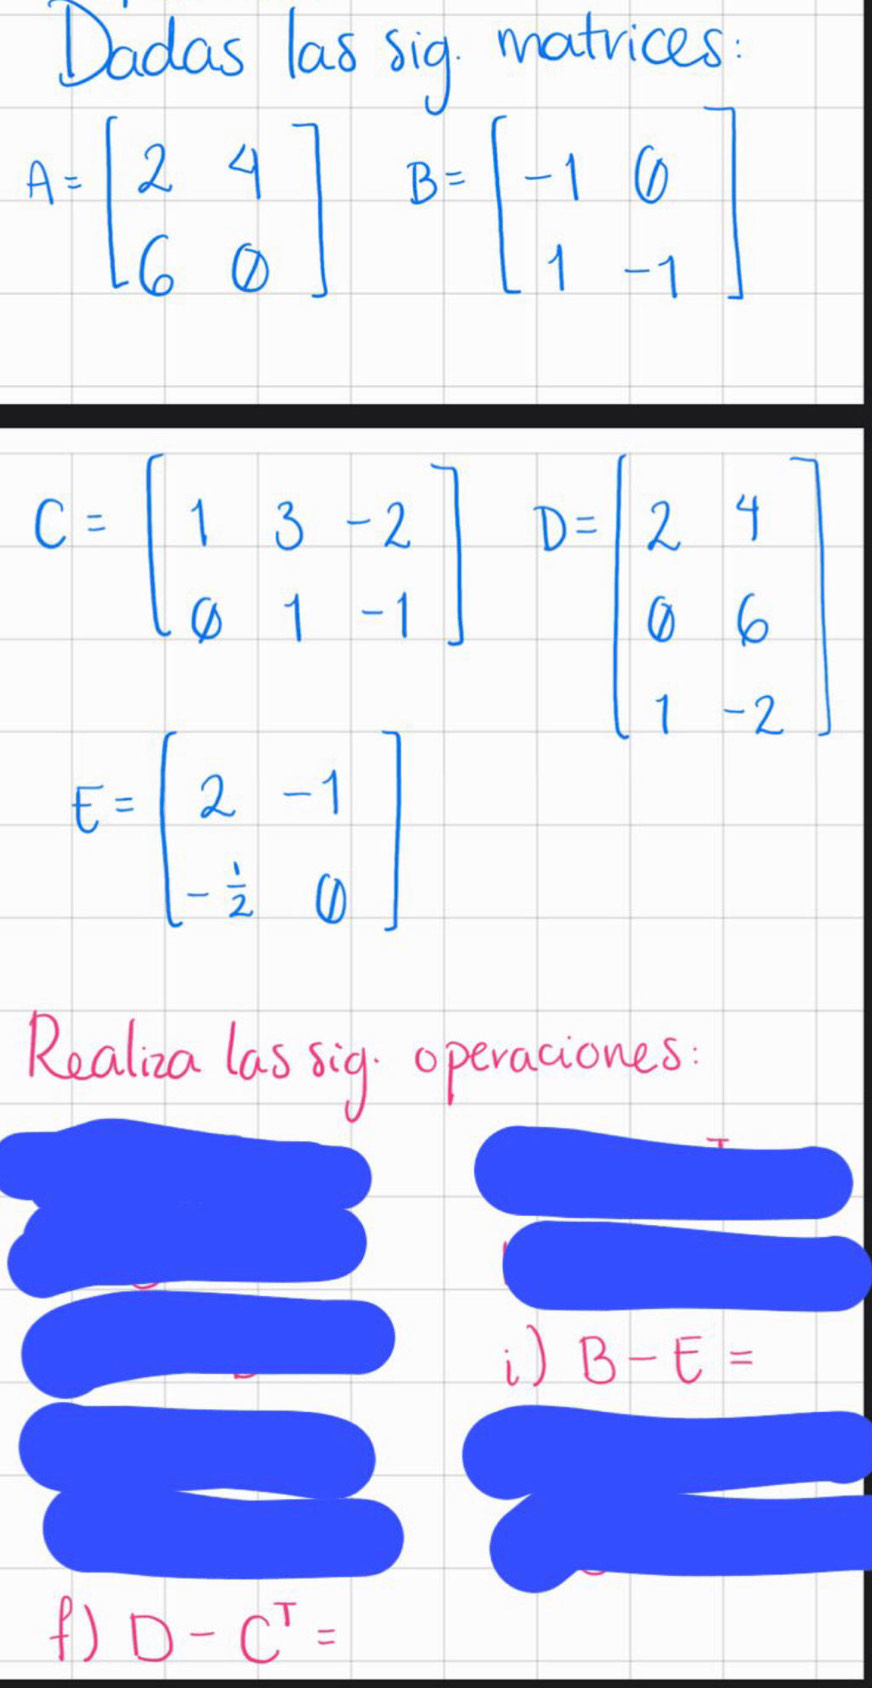 Dadas las sig. matrices:
A = [ 2 4 B = [ -1 0
6 0 ] 1 -1 ]
C = [ 1 3 -2 D = [ 2 4
0 1 -1 ] 0 6
1 -2 ]
E = [ 2 -1
-1/2 0 ]
Realiza las sig. operaciones:
i) B - E =
f) D - Cᵀ =